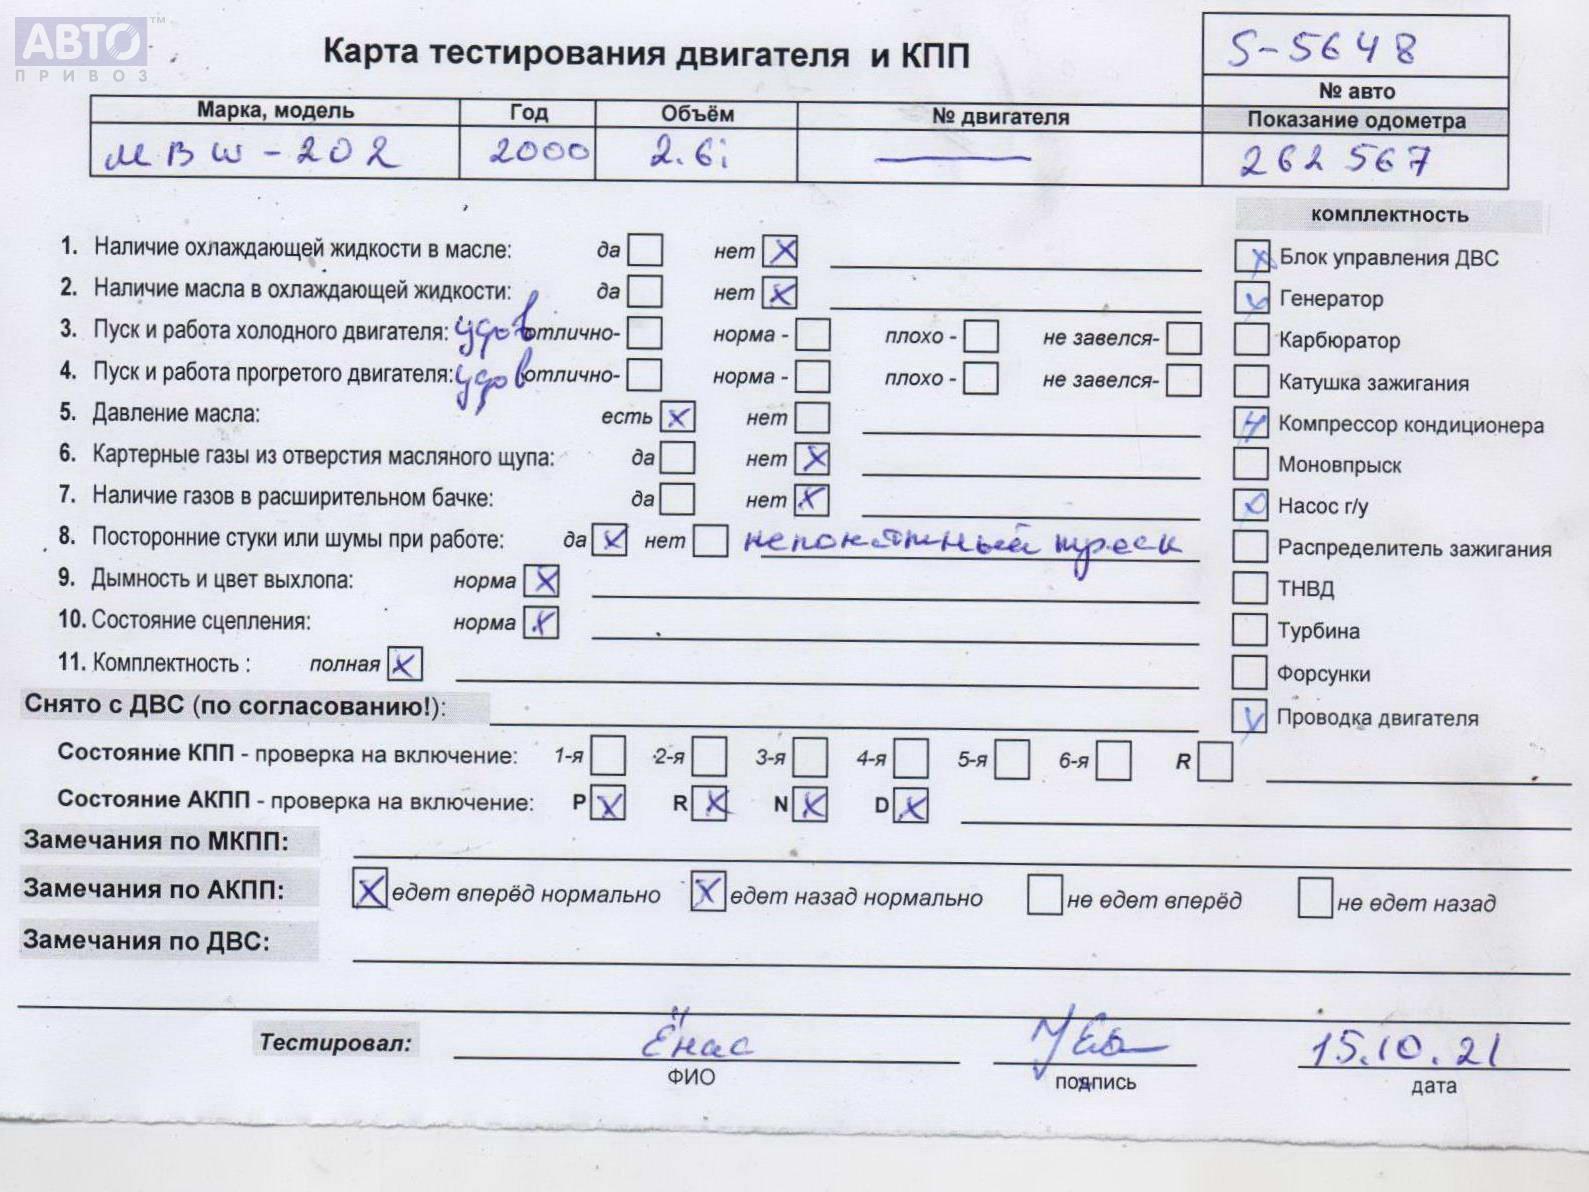 АВТО™
ПРИВОЗ
Карта тестирования двигателя и КПП
S-5648
№ авто
Марка, модель Год Объём № двигателя Показание одометра
МВ W-202 2000 2.6i — 262 567
комплектность
1. Наличие охлаждающей жидкости в масле: да нет X
Блок управления ДВС X
2. Наличие масла в охлаждающей жидкости: да нет X
Генератор X
3. Пуск и работа холодного двигателя: удов отлично- норма - плохо - не завелся-
Карбюратор
4. Пуск и работа прогретого двигателя: удов отлично- норма - плохо - не завелся-
Катушка зажигания
5. Давление масла: есть X нет
Компрессор кондиционера
6. Картерные газы из отверстия масляного щупа: да нет X
Моновпрыск
7. Наличие газов в расширительном бачке: да нет X
Насос г/у X
8. Посторонние стуки или шумы при работе: да X нет непонятный треск
Распределитель зажигания
9. Дымность и цвет выхлопа: норма X
ТНВД
10. Состояние сцепления: норма X
Турбина
11. Комплектность : полная X
Форсунки
Снято с ДВС (по согласованию!):
Проводка двигателя X
Состояние КПП - проверка на включение: 1-я 2-я 3-я 4-я 5-я 6-я R
Состояние АКПП - проверка на включение: P X R X N X D X
Замечания по МКПП:
Замечания по АКПП: X едет вперёд нормально X едет назад нормально не едет вперёд не едет назад
Замечания по ДВС:
Тестировал: Ёнас 15.10.21
ФИО подпись дата